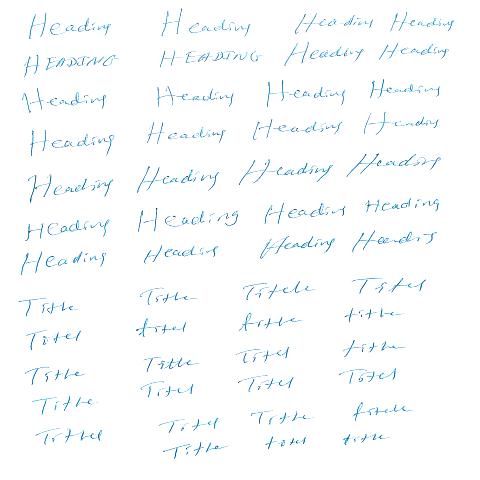 Heading Heading Heading Heading
HEADING HEADING Heading Heading
Heading Heading Heading Heading
Heading Heading Heading Heading
Heading Heading Heading Heading
Heading Heading Heading Heading
Heading Heading Heading
Title Title Title Titel
Titel titel title title
Title Title Titel title
Title Titel Titel Titel
Title Titel Title
Title title